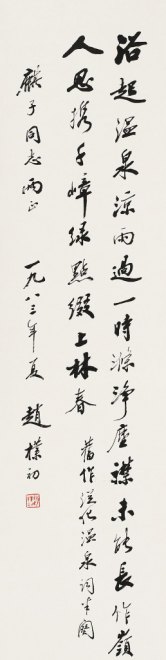 浴起温泉凉雨過一時滌净塵襟未能長作嶺
人思携千嶂緑點綴上林春 舊作從化温泉詞半闋
麟子同志两正
一九八三年夏 趙樸初